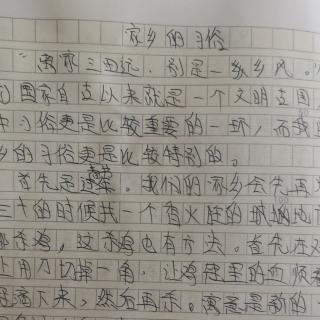 家乡的习俗
离家三里远，别是一乡风。
国家自古以来就是一个文明古国，
习俗更是比较重要的一环，而我
乡的习俗更是比较特别的。
首先是。我们的家乡会先再
三十的时候找一个香火旺的城隍庙
杀鸡，这杀鸡也有方法。首先在
上用刀切掉一角，让鸡里的血顺着
滴下来，然后再杀。寓意是新的一